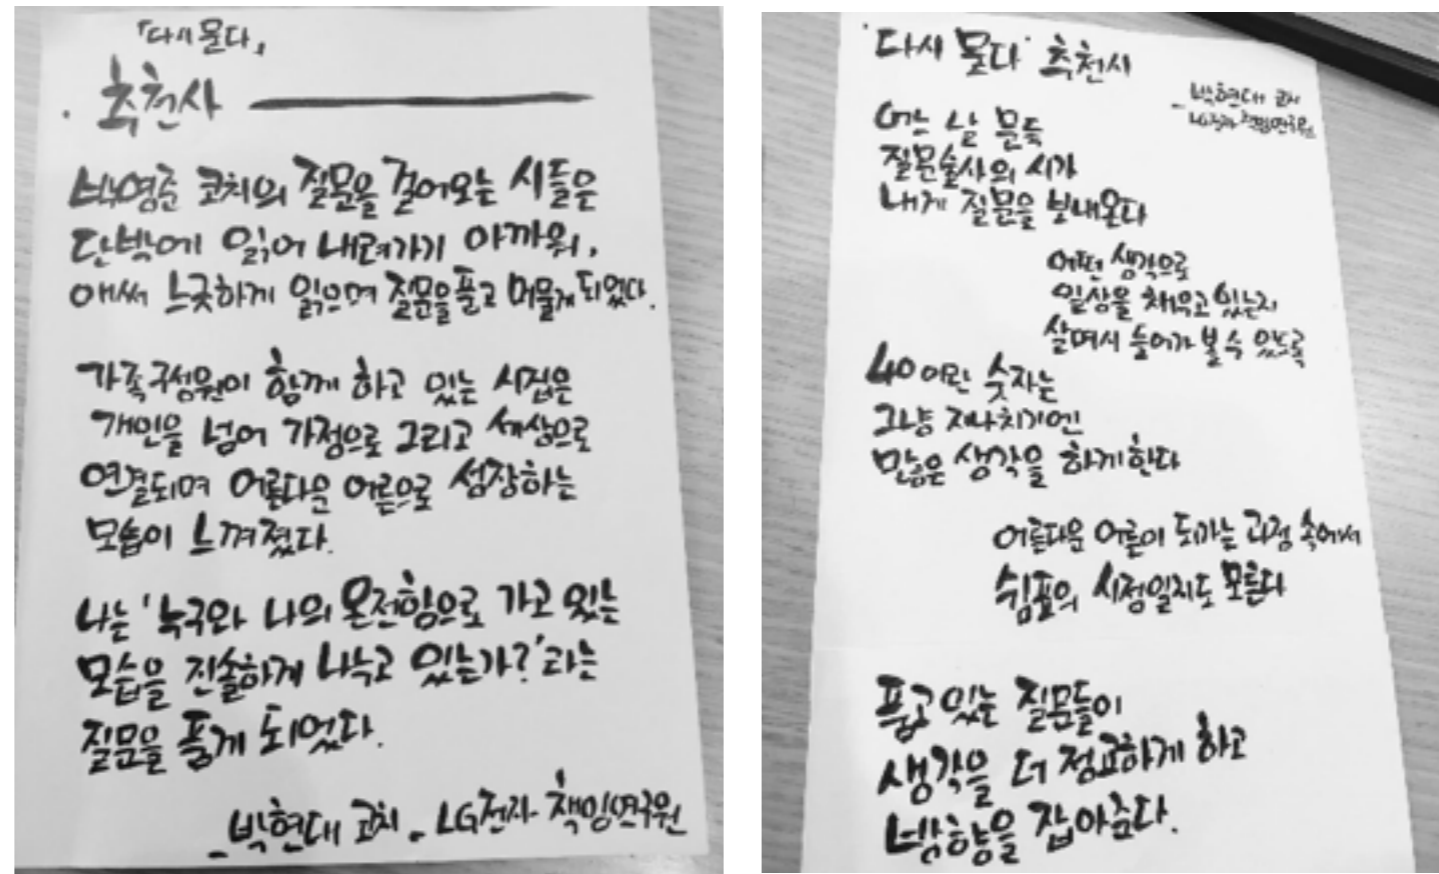 「다시 묻다」
추천사
박영준 코치의 질문을 걸어오는 시들은
단박에 읽어 내려가기 아까워,
애써 느긋하게 읽으며 질문을 품고 머물게 되었다.
가족구성원이 함께 하고 있는 시집은
개인을 넘어 가정으로 그리고 세상으로
연결되며 어른다운 어른으로 성장하는
모습이 느껴졌다.
나는 '누구와 나의 온전함으로 가고 있는
모습을 진솔하게 나누고 있는가?'라는
질문을 품게 되었다.
_박현대 코치. LG전자 책임연구원
'다시 묻다' 추천시
_박현대 코치
LG전자 책임연구원
어느 날 문득
질문술사의 시가
내게 질문을 보내온다
어떤 생각으로
일상을 채우고 있는지
살며시 들어가 볼 수 있도록
40이란 숫자는
그냥 지나치기엔
많은 생각을 하게 한다
어른다운 어른이 되가는 과정 속에서
쉼표의 시점일지도 모른다
품고 있는 질문들이
생각을 더 정교하게 하고
방향을 잡아준다.